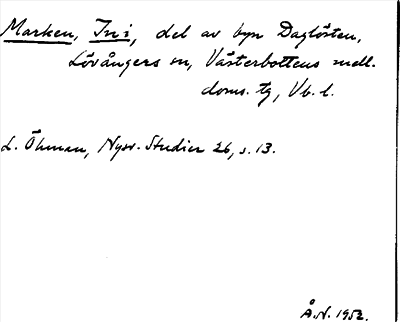 Marken, In i, del av byn Daglösten,
Lövångers sn, Västerbottens mell.
doms. tg, Vb. l.
L. Öhman, Nysv. Studier 26, s. 13.
Å.N. 1952.